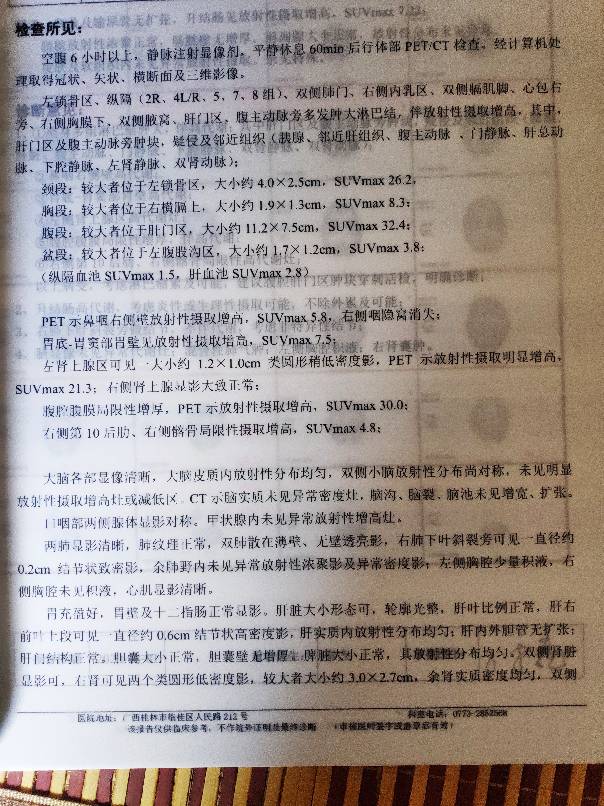 升结肠见放射性摄取增高，SUVmax 7.22；
检查所见：
空腹 6 小时以上，静脉注射显像剂，平静休息 60min 后行体部 PET/CT 检查。经计算机处
理取得冠状、矢状、横断面及三维影像。
左锁骨区、纵隔（2R、4L/R、5、7、8 组）、双侧肺门、右侧内乳区、双侧膈肌脚、心包右
旁、右侧胸膜下，双侧腋窝、肝门区、腹主动脉旁多发肿大淋巴结，伴放射性摄取增高，其中，
肝门区及腹主动脉旁肿块，延侵及邻近组织（胰腺、邻近肝组织、腹主动脉、门静脉、肝总动
脉、下腔静脉、左肾静脉、双肾动脉）；
颈段：较大者位于左锁骨区，大小约 4.0×2.5cm，SUVmax 26.2，
胸段：较大者位于右横膈上，大小约 1.9×1.3cm，SUVmax 8.3；
腹段：较大者位于肝门区，大小约 11.2×7.5cm，SUVmax 32.4；
盆段：较大者位于左腹股沟区，大小约 1.7×1.2cm，SUVmax 3.8；
（纵隔血池 SUVmax 1.5，肝血池 SUVmax 2.8）
PET 示鼻咽右侧壁放射性摄取增高，SUVmax 5.8，右侧咽隐窝消失；
胃底-胃窦部胃壁见放射性摄取增高，SUVmax 7.5；
左肾上腺区可见一大小约 1.2×1.0cm 类圆形稍低密度影，PET 示放射性摄取明显增高，
SUVmax 21.3；右侧肾上腺显影大致正常；
腹腔腹膜局限性增厚，PET 示放射性摄取增高，SUVmax 30.0；
右侧第 10 后肋、右侧髂骨局限性摄取增高，SUVmax 4.8；
大脑各部显像清晰，大脑皮质内放射性分布均匀，双侧小脑放射性分布尚对称，未见明显
放射性摄取增高灶或减低区。CT 示脑实质未见异常密度灶，脑沟、脑裂、脑池未见增宽、扩张。
口咽部两侧腺体显影对称。甲状腺内未见异常放射性增高灶。
两肺显影清晰，肺纹理正常，双肺散在薄壁、无壁透亮影，右肺下叶斜裂旁可见一直径约
0.2cm 结节状致密影，余肺野内未见异常放射性浓聚影及异常密度影；左侧胸腔少量积液，右
侧胸腔未见积液，心肌显影清晰。
胃充盈好，胃壁及十二指肠正常显影。肝脏大小形态可，轮廓光整，肝叶比例正常，肝右
前叶上段可见一直径约 0.6cm 结节状高密度影，肝实质内放射性分布均匀；肝内外胆管无扩张；
肝门结构正常。胆囊大小正常，胆囊壁无增厚。脾脏大小正常，其放射性分布均匀。双侧肾脏
显影可，右肾可见两个类圆形低密度影，较大者大小约 3.0×2.7cm，余肾实质密度均匀，双侧
医院地址：广西桂林市临桂区人民路 212 号 科室电话：0773-2852568
该报告仅供临床参考，不作疑外证明及最终诊断 （审核医师签字或盖章后有效）